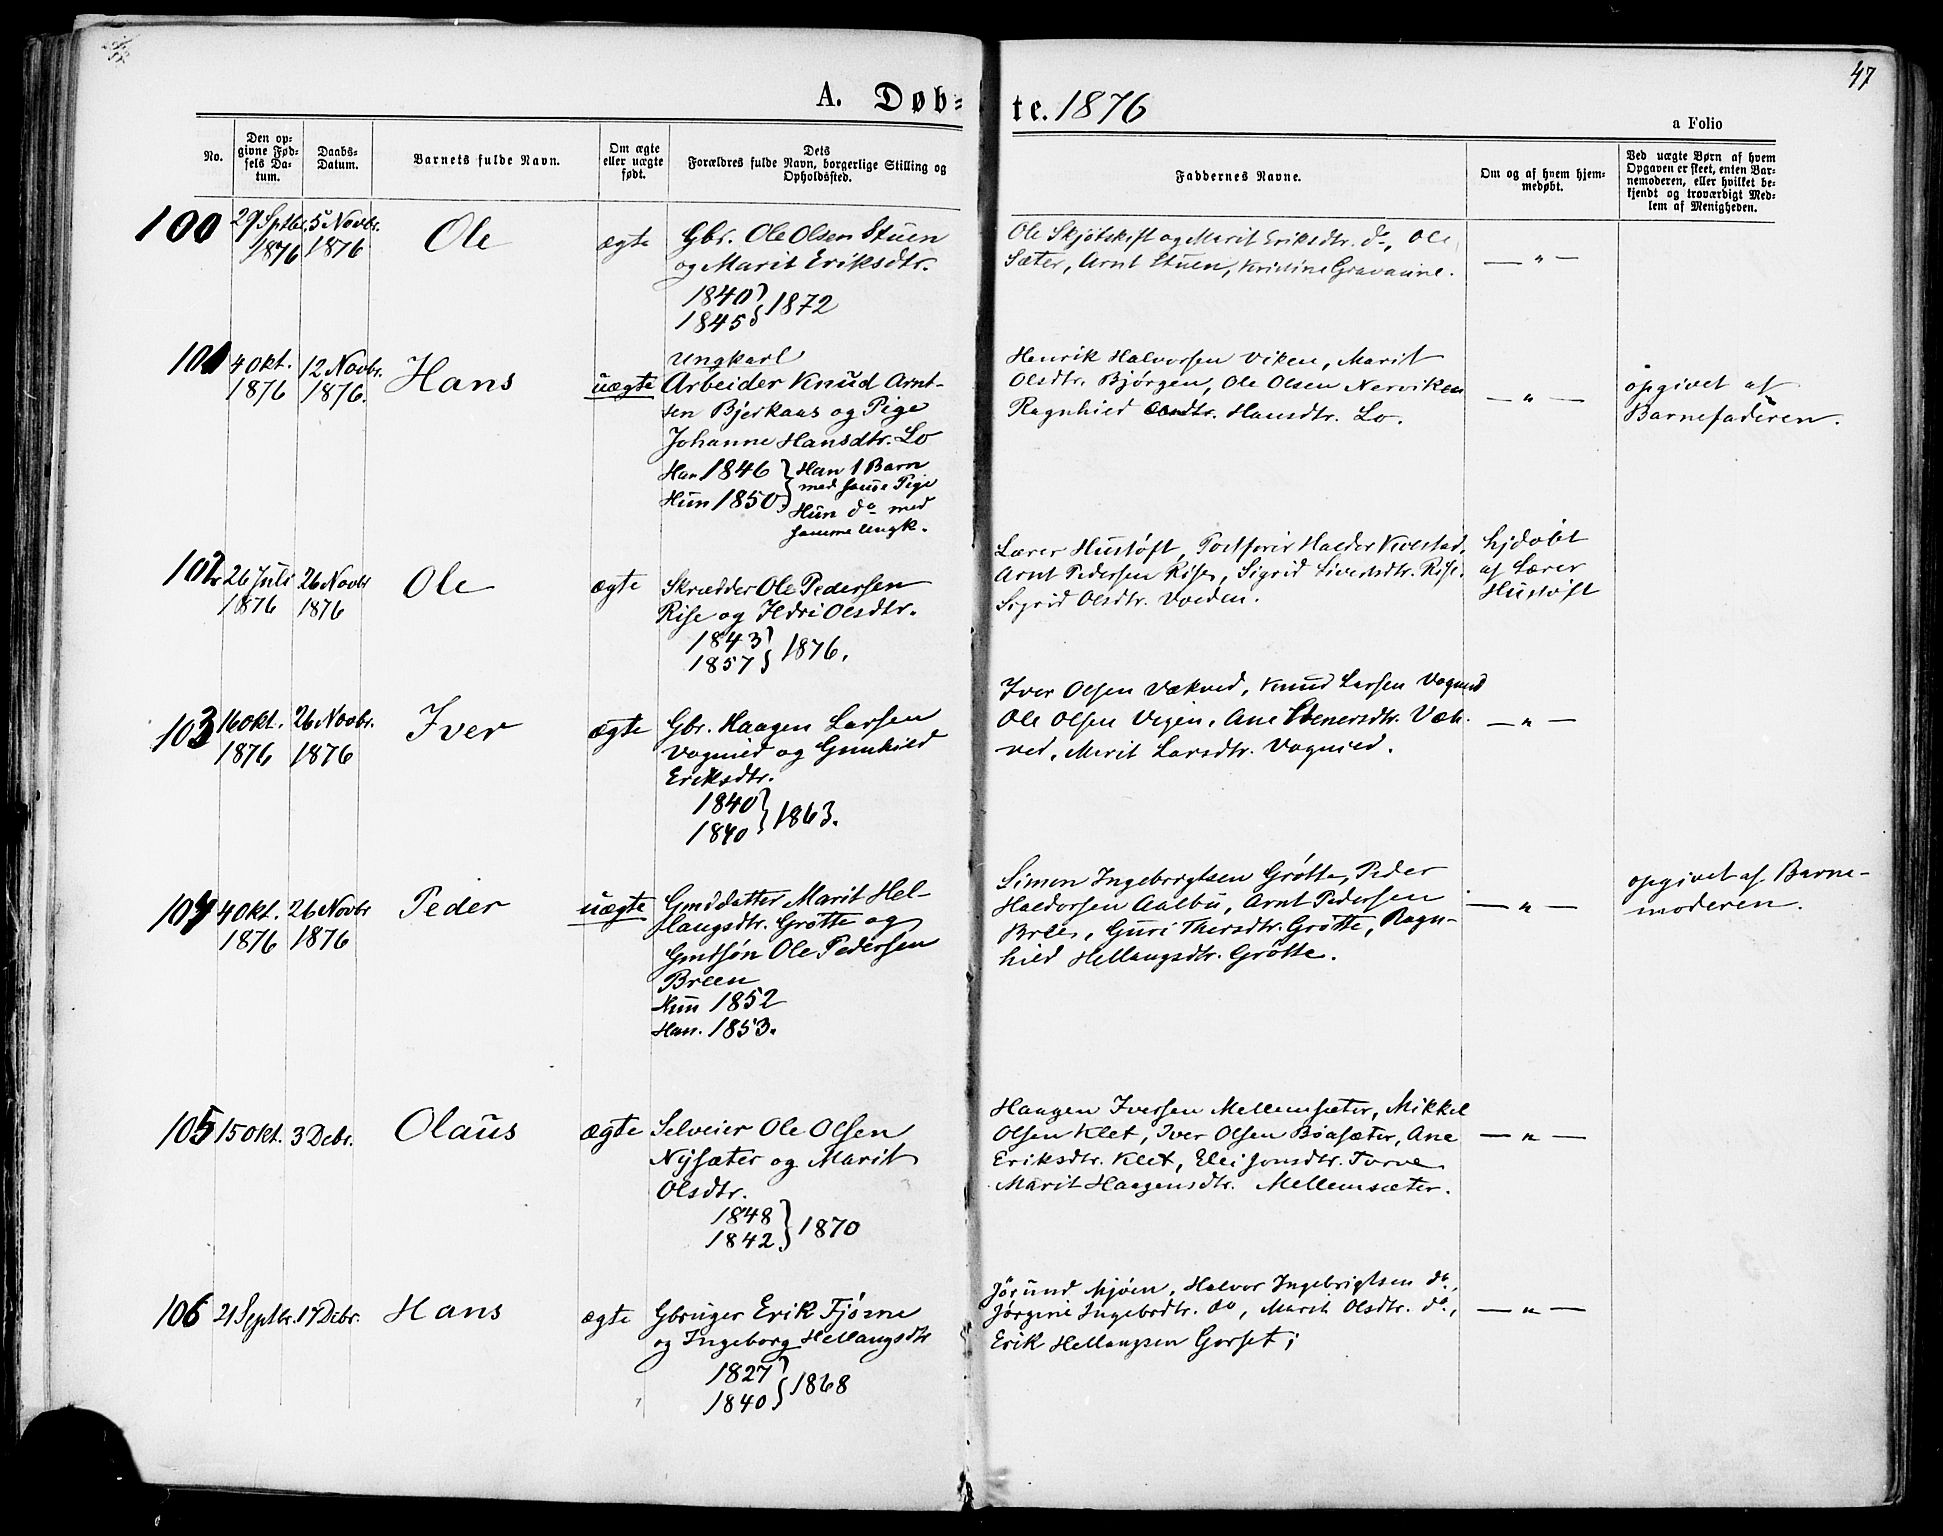 47
A. Døb-
te. 1876
a Folio
No.
Den op-
givne Fød-
sels Da-
tum.
Daabs-
Datum.
Barnets fulde Navn.
Om ægte
eller uægte
født.
Dets
Forældres fulde Navn, borgerlige Stilling og
Opholdssted.
Faddernes Navne.
Om og af hvem hjem-
medøbt.
Ved uægte Børn af hvem
Opgaven er skeet, enten Bar-
nemoderen, eller hvilket be-
kjendt og troværdigt Med-
lem af Menigheden.
100
29 Septbr.
1876
5 Novbr.
1876
Ole
ægte
Gbr. Ole Olsen Stuen
og Marit Eriksdtr.
1840
1845 } 1872
Ole Skjøtskift og Marit Eriksdtr. do, Ole
Sæter, Arnt Stuen, Kristine Gravaune.
— " —
101
4 Okt.
1876
12 Novbr.
1876.
Hans
uægte
Ungkarl
Arbeider Knud Arnt-
sen Bjerkaas og Pige
Johanne Hansdtr. Lo
Han 1846 } Han 1 Barn
med samme Pige
Hun 1850 Hun do med
samme Ungk.
Henrik Halvorsen Viken, Marit
Olsdtr. Bjørgen, Ole Olsen Nerviken
Ragnhild Hansdtr. Lo.
— " —
opgivet af
Barnefaderen.
102
26 Juli
1876
26 Novbr
1876
Ole
ægte
Skrædder Ole Pedersen
Rise og Ildri Olsdtr.
1843
1857 } 1876.
Lærer Hustøft, Haldor Kolstad,
Arnt Pedersen Rise, Sigrid Sivertsdtr. Rise.
Sigrid Olsdtr. Voeden.
hjdøbt
af Lærer
Hustøft
103
16 Okt.
1876
26 Novbr.
1876
Iver
ægte
Gbr. Haagen Larsen
Vognild og Gunhild
Eriksdtr.
1840
1840 } 1863.
Iver Olsen Vækved, Knud Larsen Vognild
Ole Olsen Vigen, Ane Væk-
ved, Marit Larsdtr. Vognild.
— " —
104
4 Okt.
1876
26 Novbr
1876
Peder
uægte
Gmddatter Marit Hel-
langsdtr. Grøtte og
Gmdsøn Ole Pedersen
Breen
Hun 1852
Han. 1853.
Simon Ingebrigtsen Grøtte, Peder
Haldorsen Aalbu, Arnt Pedersen
Breen, Guri Thorsdtr. Grøtte, Ragn-
hild Hellangsdtr. Grøtte.
— " —
opgivet af Barne-
moderen.
105
15 Okt.
3 Debr.
Olaus
ægte
Selveier Ole Olsen
Nysæter og Marit
Olsdtr.
1848
1842 } 1870
Haagen Iversen Mellemsæter, Mikkel
Olsen Klet, Iver Olsen Bøasæter, Ane
Eriksdtr. Klet, Eli Jonsdtr. Torve
Marit Haagensdtr. Mellemsæter.
— " —
106
21 Septbr.
17 Debr.
Hans
ægte
Gbruger Erik Fjørne
og Ingeborg Hellangsdtr
1827
1840 } 1868
Jørund Mjøen, Halvor Ingebrigtsen do,
Jørgine Ingebrdtr. do, Marit Olsdtr. do,
Erik Hellangsen Gorset;
— " —